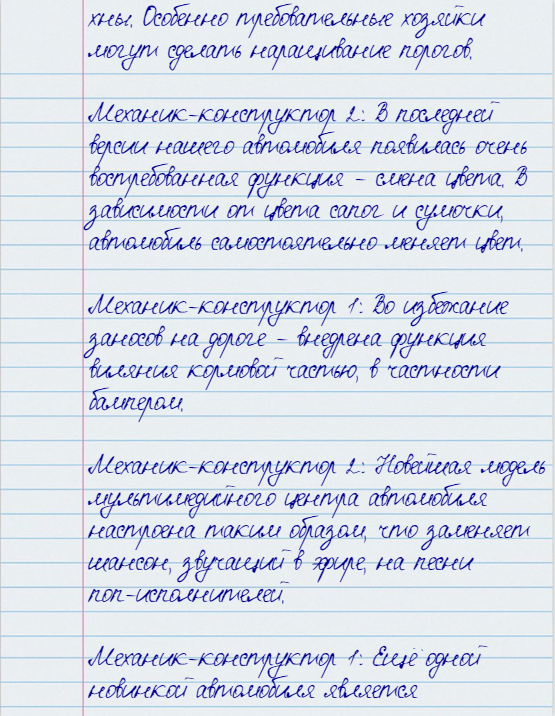 хны. Особенно требовательные хозяйки
могут сделать наращивание порогов.
Механик-конструктор 2: В последней
версии нашего автомобиля появилась очень
востребованная функция – смена цвета. В
зависимости от цвета сапог и сумочки,
автомобиль самостоятельно меняет цвет.
Механик-конструктор 1: Во избежание
заносов на дороге – внедрена функция
виляния кормовой частью, в частности
бампером.
Механик-конструктор 2: Новейшая модель
мультимедийного центра автомобиля
настроена таким образом, что заменяет
шансон, звучащий в эфире, на песни
поп-исполнителей.
Механик-конструктор 1: Ещё одной
новинкой автомобиля является